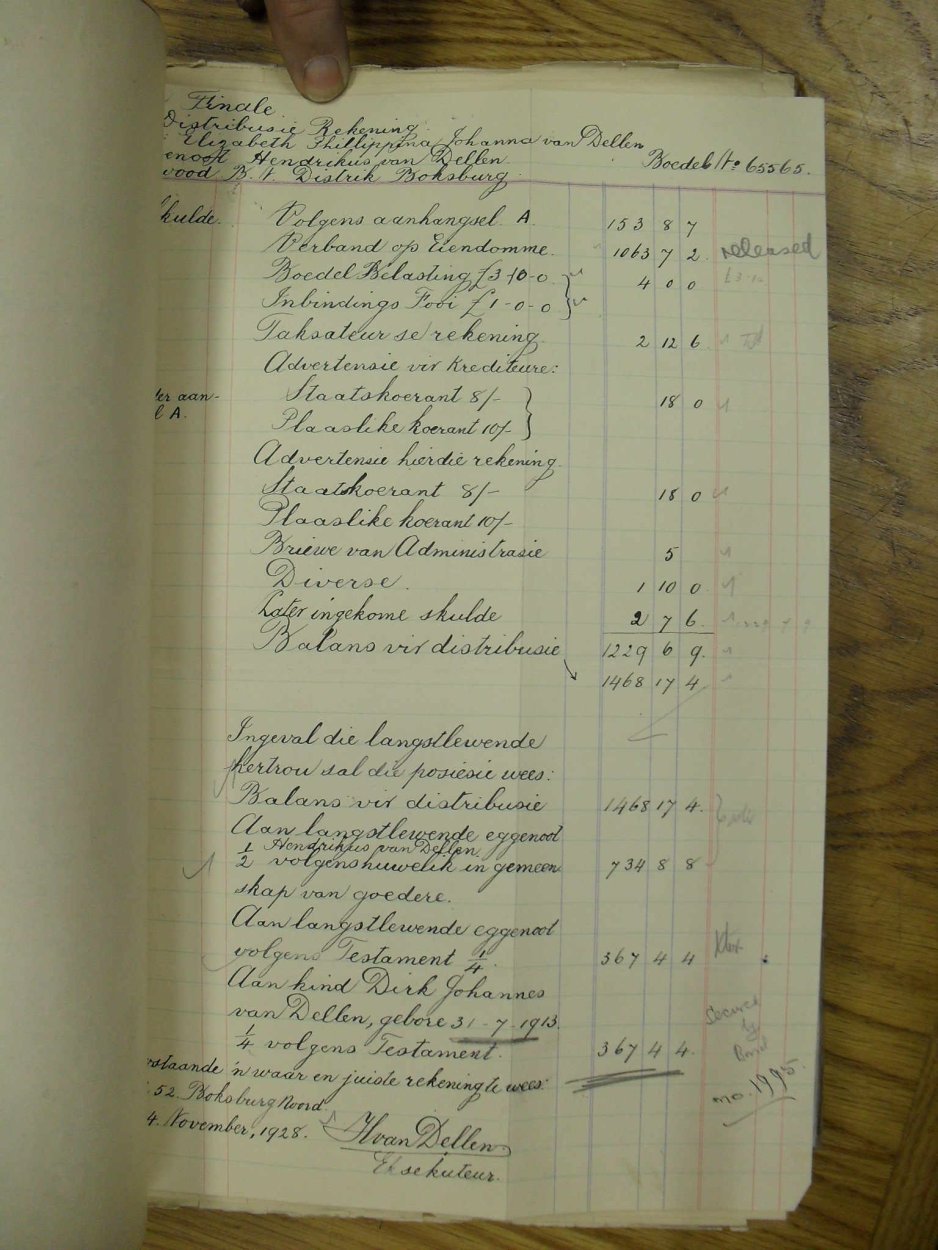 Finale
Distribusie Rekening
Elizabeth Phillippina Johanna van Dellen
enoot Hendrikus van Dellen Boedel No 65565.
Distrik Boksburg
kulde. Volgens aanhangsel A. 153 8 7
Verband op Eiendomme. 1063 7 2. released
Boedel Belasting £3-10-0 4 0 0
Inbindings Fooi £1-0-0
Taksateur se rekening 2 12 6.
Advertensie vir krediteure:
er aan- Staatskoerant 8/- 18 0
l A. Plaaslike koerant 10/-
Advertensie hierdie rekening
Staatskoerant 8/- 18 0
Plaaslike koerant 10/-
Briewe van Administrasie 5
Diverse. 1 10 0
Later ingekome skulde 2 7 6.
Balans vir distribusie 1229 6 9.
1468 17 4
Ingeval die langstlewende
hertrou sal die posiesie wees:
Balans vir distribusie 1468 17 4.
Aan langstlewende eggenoot
Hendrikus van Dellen
1/2 volgens huwelik in gemeen 734 8 8
skap van goedere.
Aan langstlewende eggenoot
volgens Testament 1/4. 367 4 4
Aan kind Dirk Johannes
van Dellen, gebore 31-7-1913.
1/4 volgens Testament. 367 4 4.
Secured
by
Bond
no. 1995
rstaande 'n waar en juiste rekening te wees:
52. Boksburg Noord.
4. November, 1928. H van Dellen
Eksekuteur.